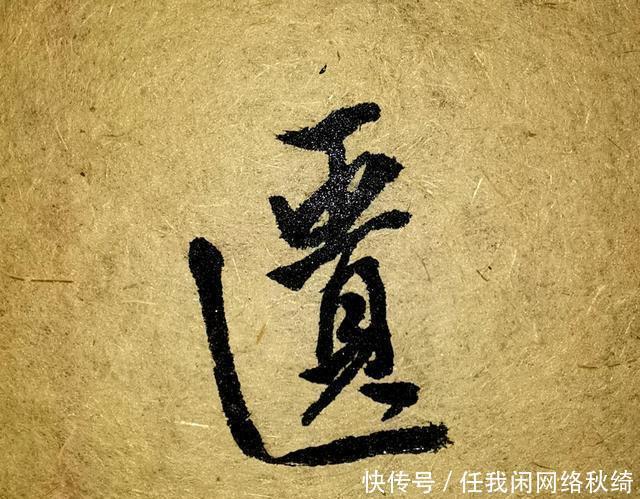 匱
快传号 / 任我闲网络秋绮